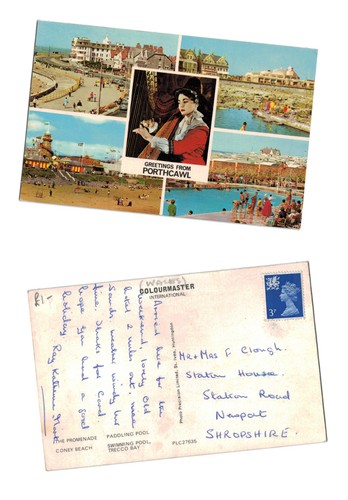 GREETINGS FROM
PORTHCAWL
(WALES)
COLOURMASTER
INTERNATIONAL
Photo Precision Limited, St. Ives, Huntingdon
3P
Arrived here for the
weekend, lovely old
hotel 2 miles out, near
Sands weather windy but
fine. Thanks for Card.
hope you had a good
holiday.
Ray Kathleen
Mr & Mrs F. Clough.
Station House.
Station Road
Newport
SHROPSHIRE.
THE PROMENADE
PADDLING POOL
CONEY BEACH
SWIMMING POOL,
TRECCO BAY
PLC27635